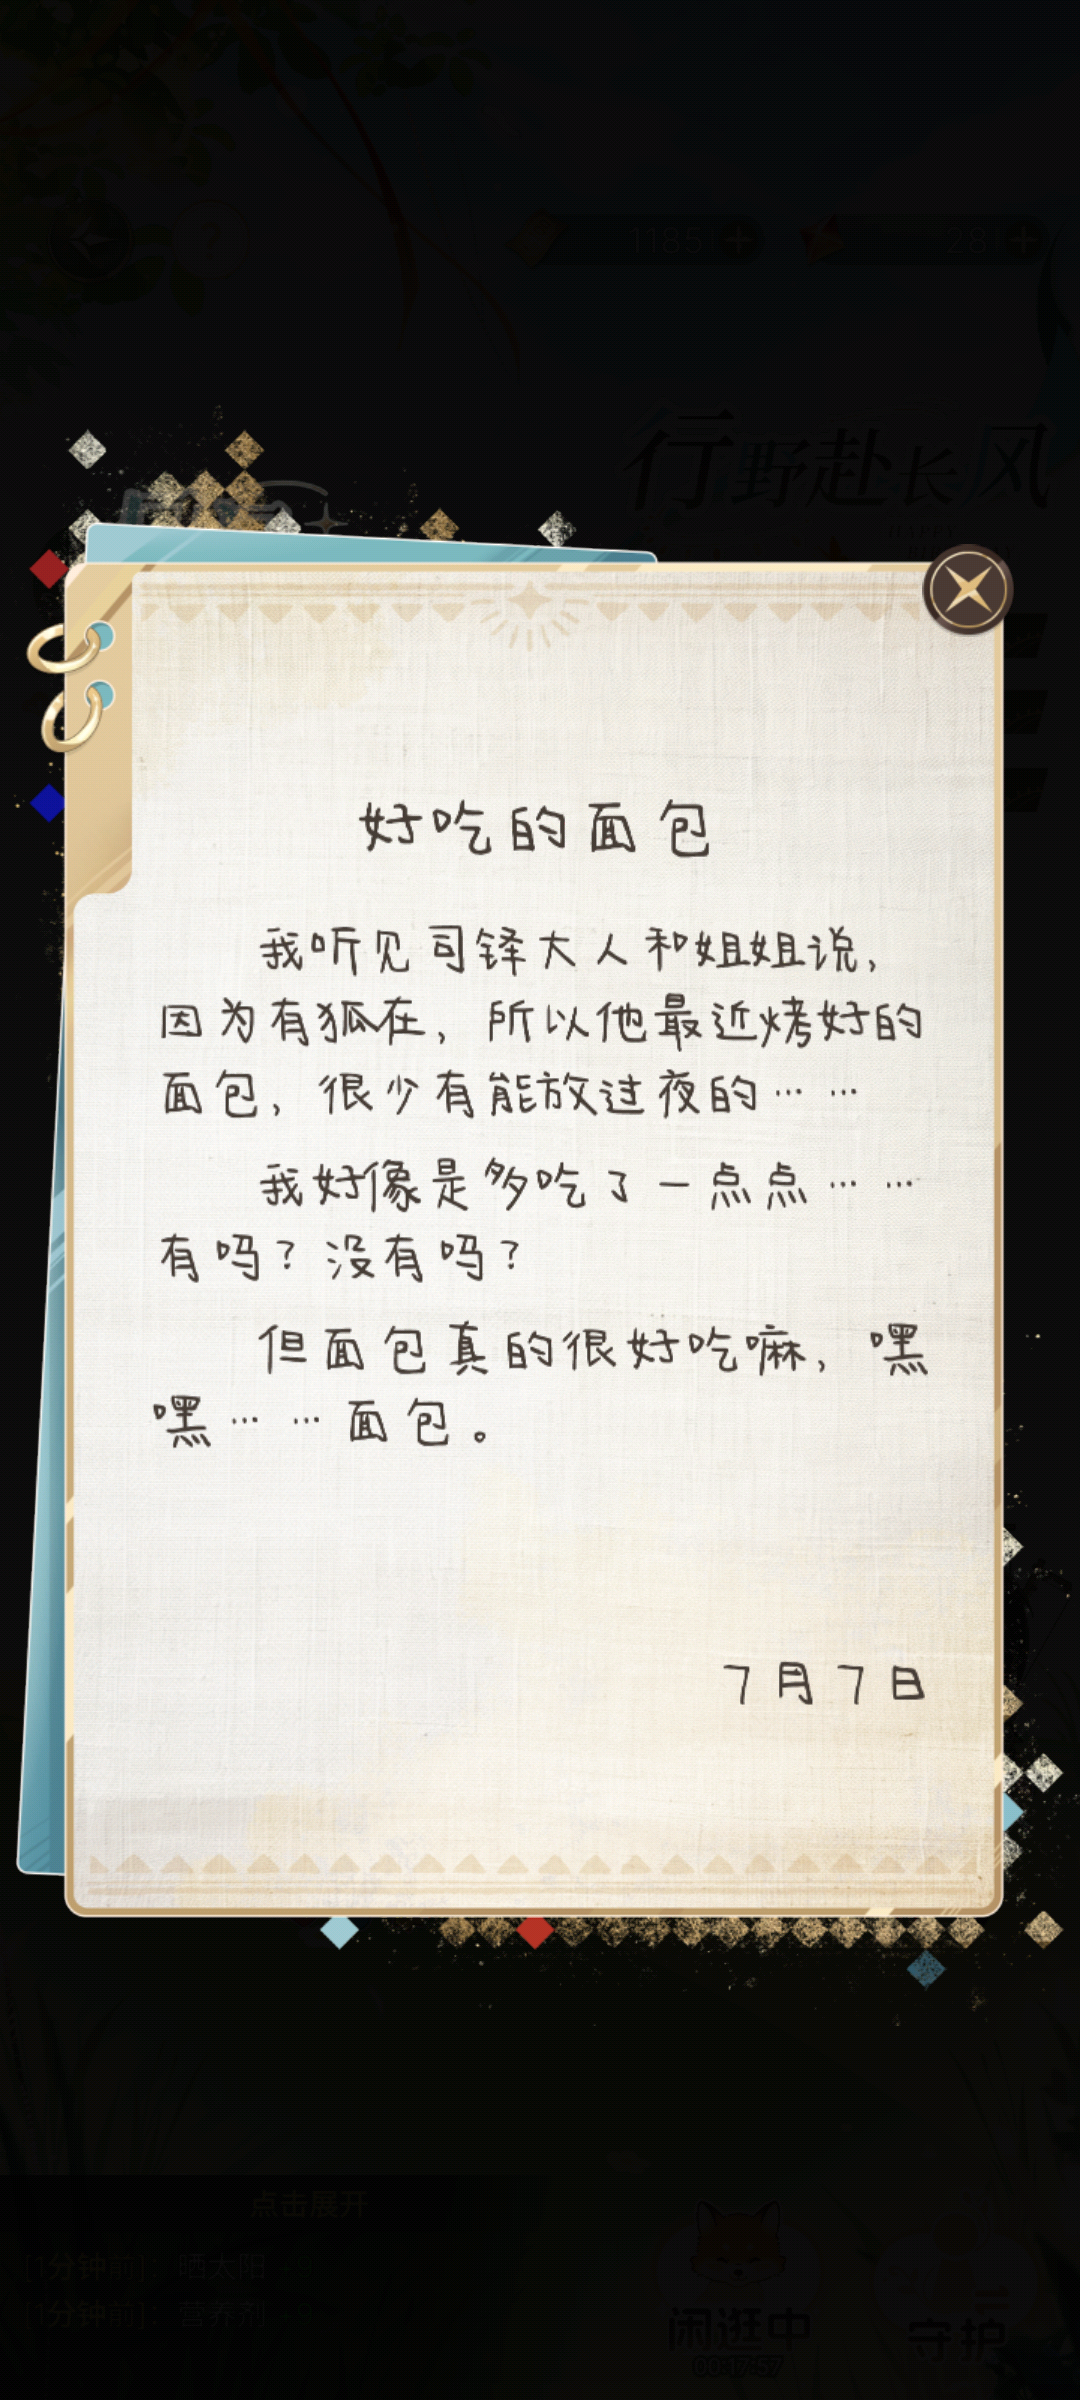 1185
28
行野赴长风
好吃的面包
我听见司铎大人和姐姐说，
因为有狐在，所以他最近烤好的
面包，很少有能放过夜的……
我好像是多吃了一点点……
有吗？没有吗？
但面包真的很好吃嘛，嘿
嘿……面包。
7月7日
点击展开
[1分钟前]：晒太阳
[1分钟前]：营养剂
闲逛中
00:17:57
守护